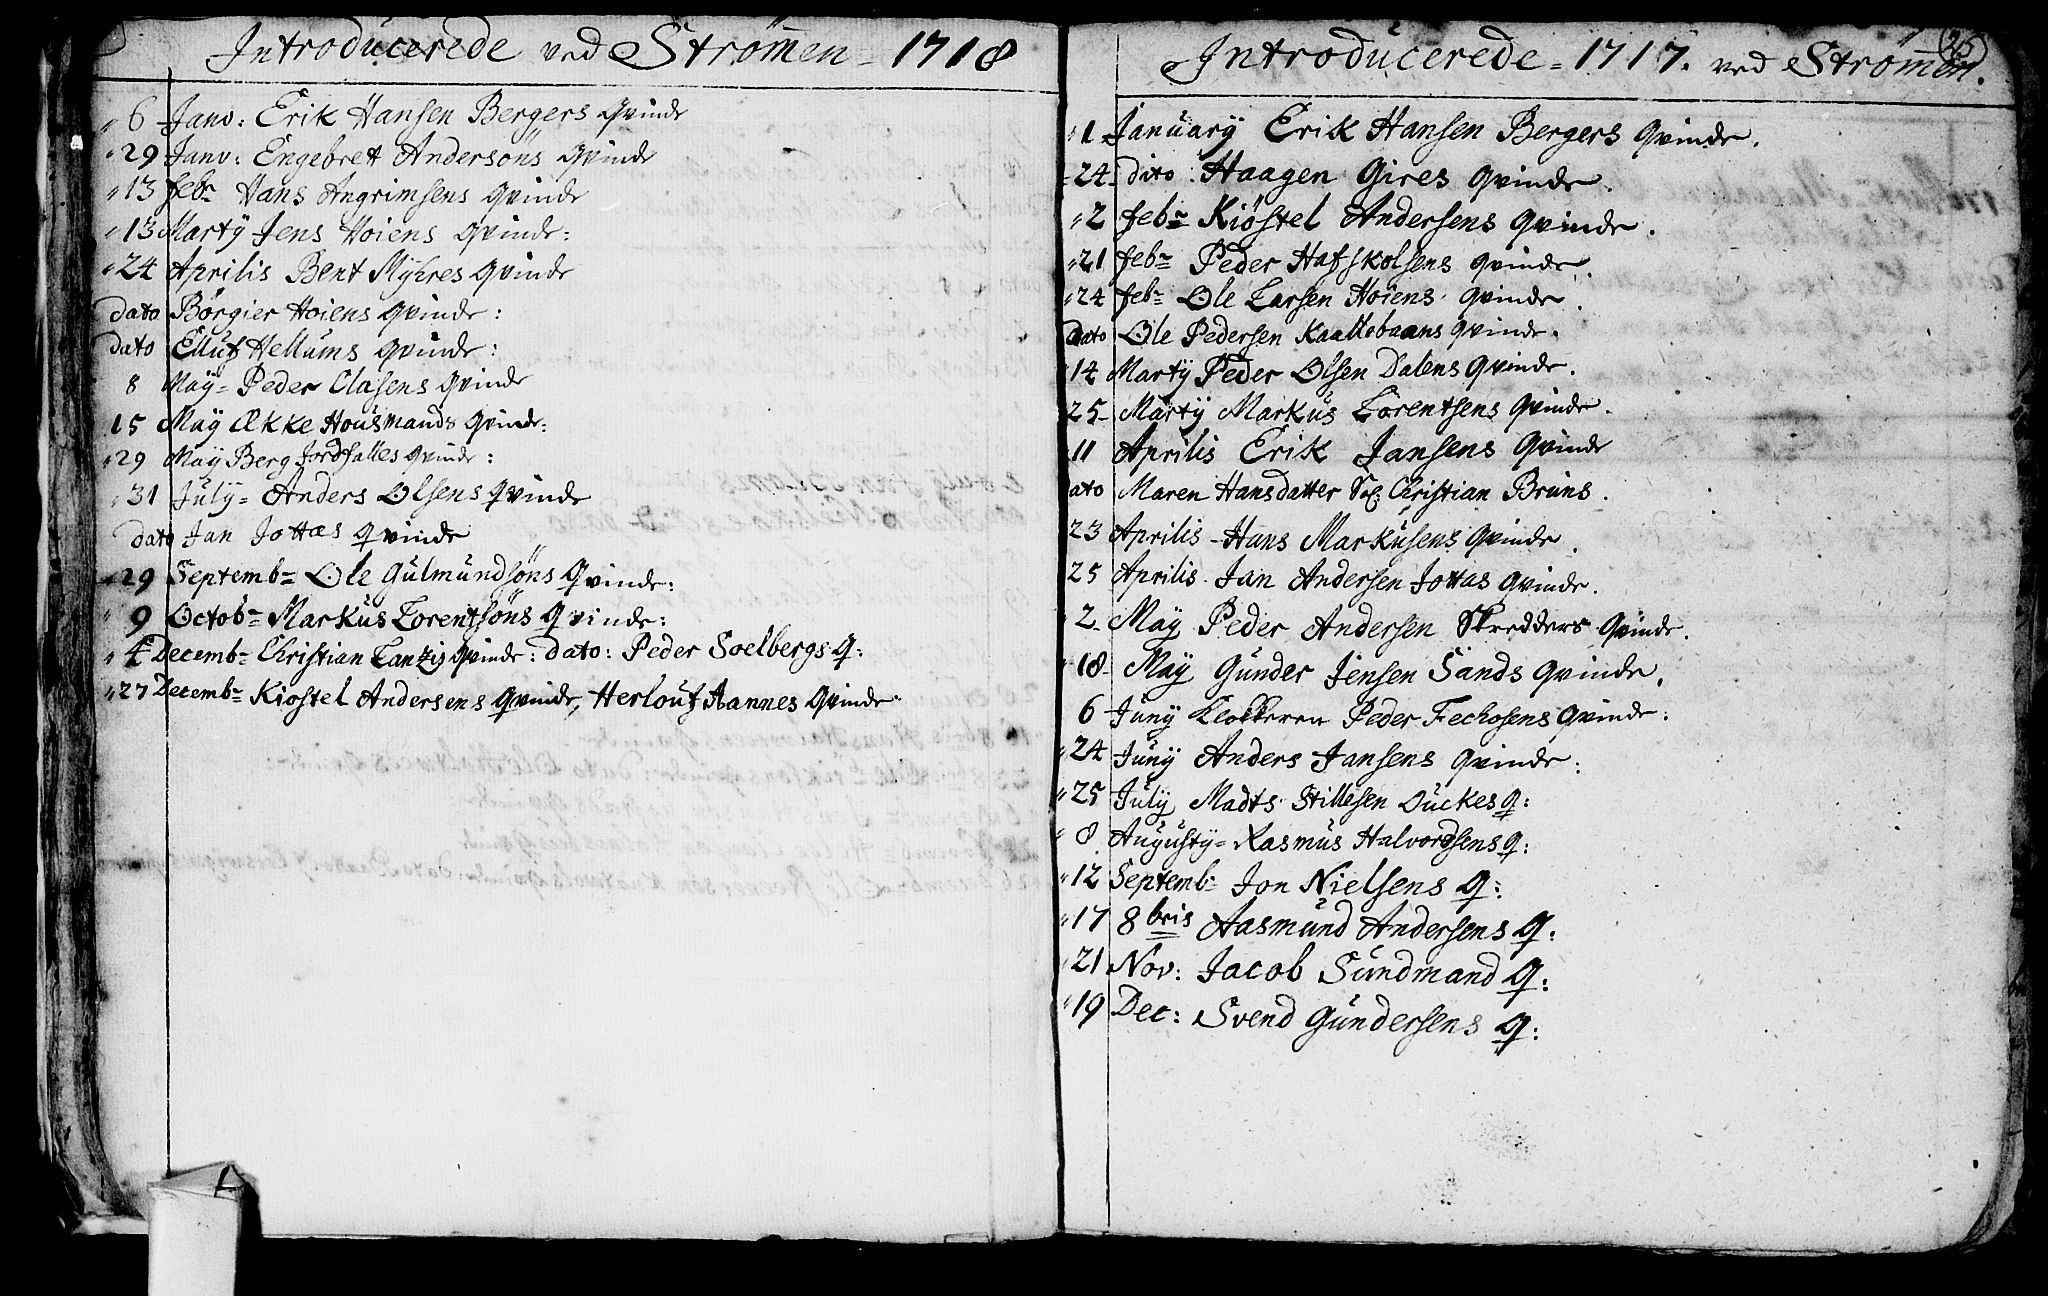 Introducerede ved Strømen = 1718
" 6 Janv: Erik Hansen Bergers Qvinde
" 29 Janv: Engebret Andersöns Qvinde
" 13 febr Hans Angrimsens Qvinde
" 13 Martÿ Jens Hoiens Qvinde:
" 24 Aprilis Bent Mÿhres Qvinde
dato Börgier Hoiens Qvinde:
dato Elluf Hellums Qvinde:
8 Maÿ = Peder Olasens Qvinde
15 Maÿ Ække Housmands Qvinde:
" 29 Maÿ Berg Jordfalles Qvinde:
" 31 Julÿ = Anders Olsens Qvinde
dato Jan Jottas Qvinde
" 29 Septemb= Ole Gulmundsöns Qvinde:
" 9 Octobr Markus Lorentsöns Qvinde:
" 4 Decembr Christian Tantzis Qvinde: dato: Peder Soelbergs Q:
" 27 Decembr Kiostel Andersens Qvinde, Herlouf Aannes Qvinde
25
Introducerede = 1717. ved Strømen.
" 1 Januarÿ Erik Hansen Bergers Qvinde.
- 24 dito: Haagen Gires Qvinde.
" 2 febr Kiöstel Andersens Qvinde.
" 21 febr Peder Hafskolsens Qvinde.
" 24 febr Ole Larsen Hoiens Qvinde.
Dato Ole Pedersen Kaallebaans Qvinde.
14 Martÿ Peder Olsen Dalens Qvinde.
25 Martÿ Markus Lorentsens Qvinde.
11 Aprilis Erik Jansens Qvinde
ato Maren Hansdatter Sl. Christian Bruns.
23 Aprilis - Hans Markusens Qvinde.
25 Aprilis. Jan Andersen Jottas Qvinde.
" 2 Maÿ Peder Andersen Skredders Qvinde.
18 Maÿ Gunder Jensen Sands Qvinde.
6 Junÿ Klokkeren Peder Fechosens Qvinde:
" 24 Junÿ Anders Jansens Qvinde:
" 25 Julÿ Madts Stillesen Duckes Q:
" 8 Augustÿ = Rasmus Halvordsens Q:
" 12 Septemb= Jon Nielsens Q:
" 17 8bris Aasmund Andersens Q:
" 21 Nov: Jacob Sundmand Q:
" 19 Dec: Svend Gundersens Q: